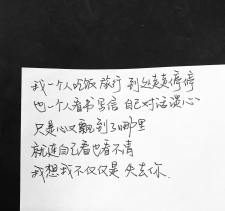 我一个人吃饭 旅行 到处走走停停
也一个人看书 写信 自己对话谈心
只是心又飘到了哪里
就连自己看也看不清
我想我不仅仅是 失去你